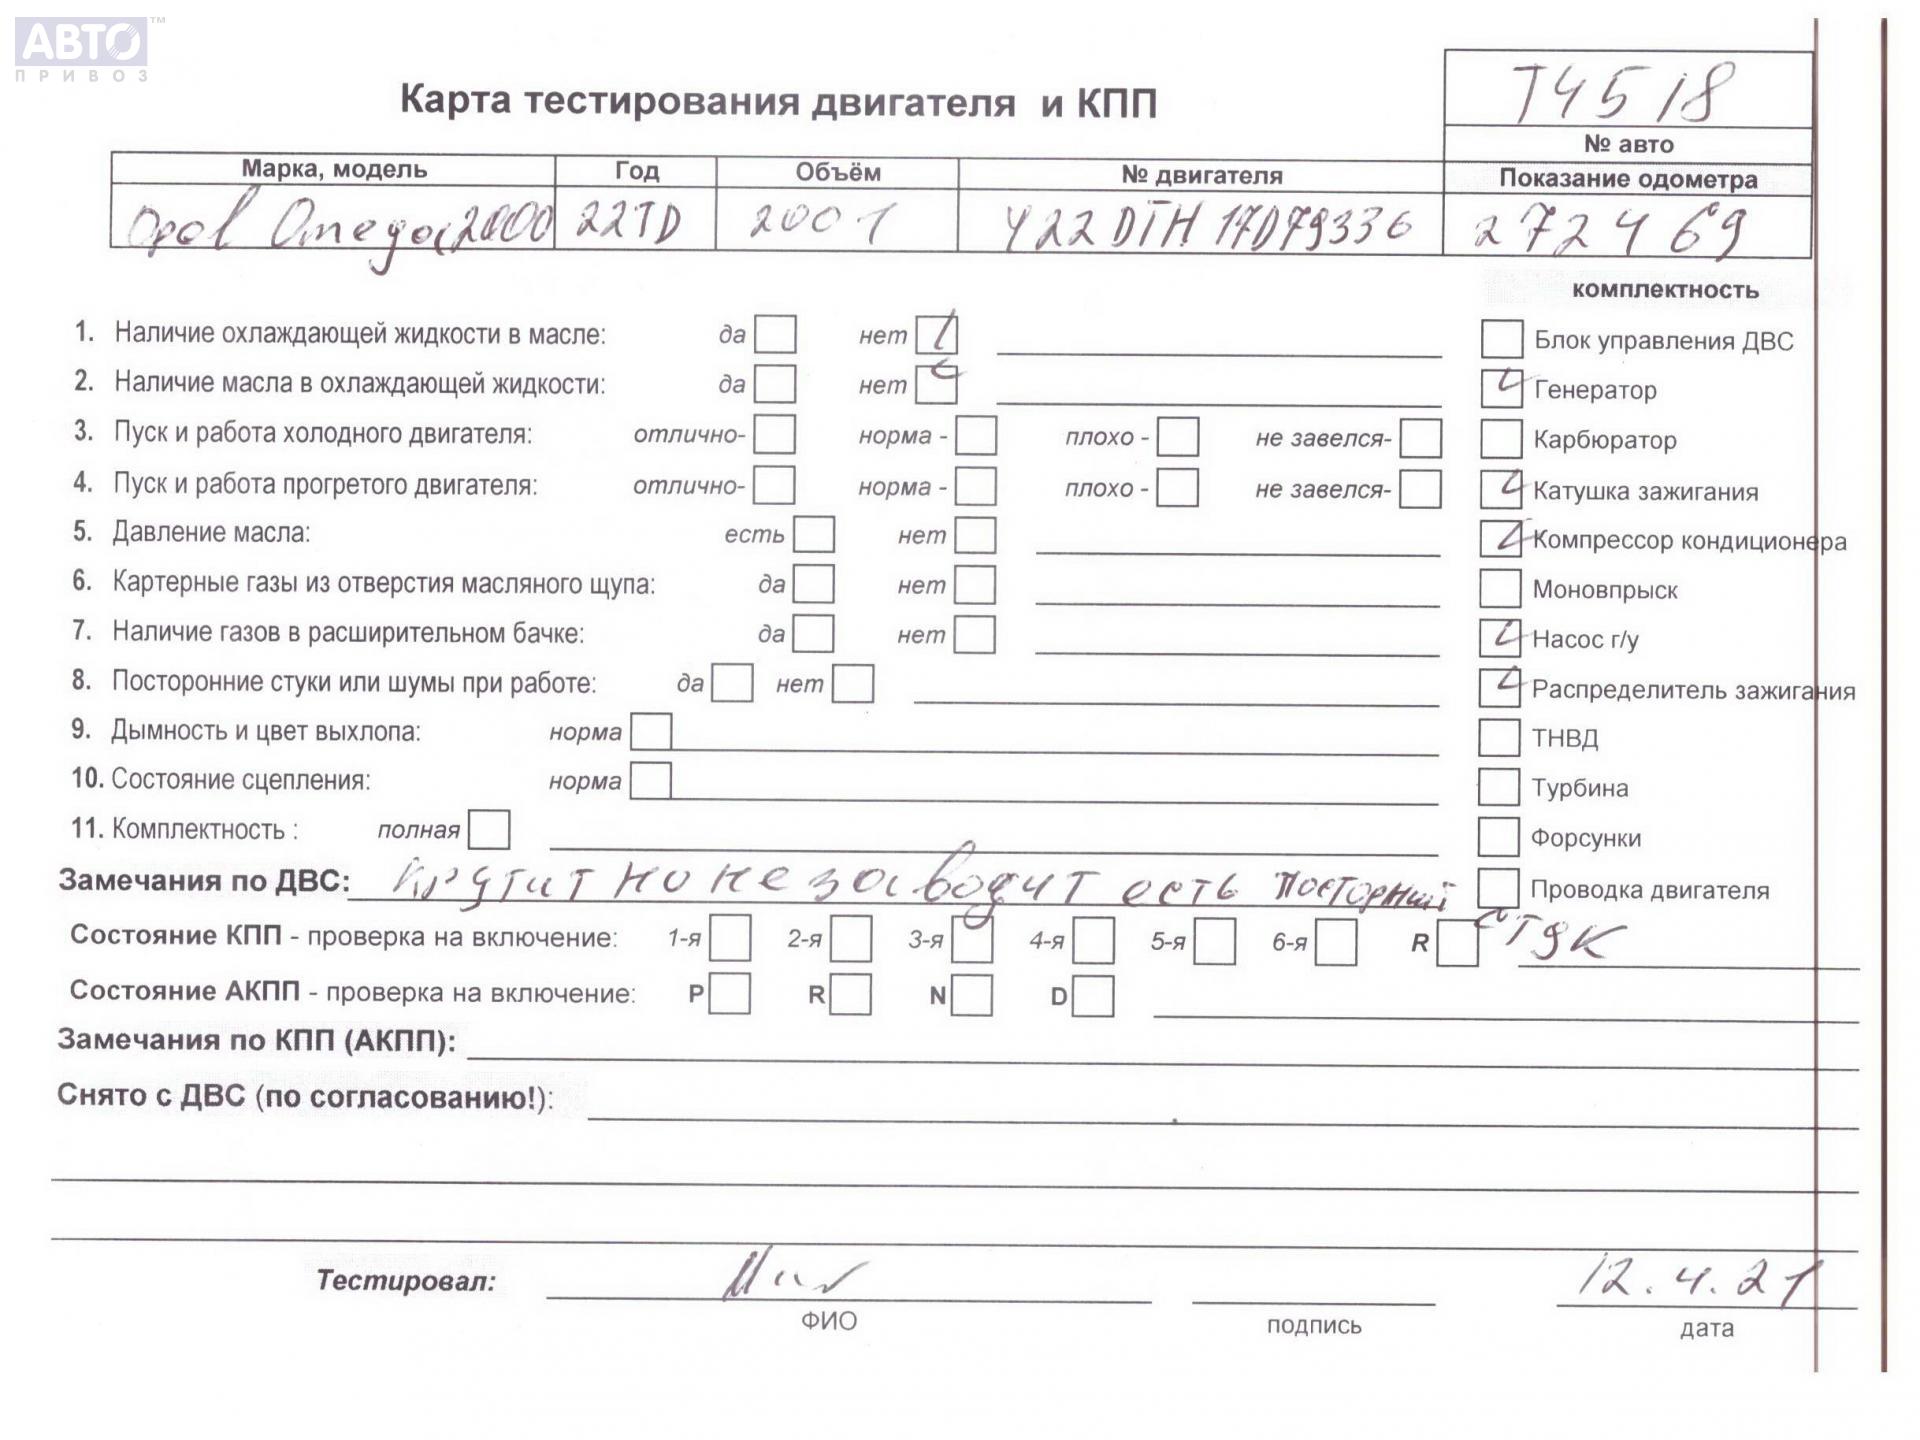 АВТО™
ПРИВОЗ
Карта тестирования двигателя и КПП
T4518
№ авто
Марка, модель Год Объём № двигателя Показание одометра
Opel Omega 2000 22TD 2001 Y22DTH 17D79336 272469
комплектность
1. Наличие охлаждающей жидкости в масле: да нет
2. Наличие масла в охлаждающей жидкости: да нет
3. Пуск и работа холодного двигателя: отлично- норма - плохо - не завелся-
4. Пуск и работа прогретого двигателя: отлично- норма - плохо - не завелся-
5. Давление масла: есть нет
6. Картерные газы из отверстия масляного щупа: да нет
7. Наличие газов в расширительном бачке: да нет
8. Посторонние стуки или шумы при работе: да нет
9. Дымность и цвет выхлопа: норма
10. Состояние сцепления: норма
11. Комплектность : полная
Блок управления ДВС
Генератор
Карбюратор
Катушка зажигания
Компрессор кондиционера
Моновпрыск
Насос г/у
Распределитель зажигания
ТНВД
Турбина
Форсунки
Проводка двигателя
Замечания по ДВС: крутит но не заводит есть посторний
стук
Состояние КПП - проверка на включение: 1-я 2-я 3-я 4-я 5-я 6-я R
Состояние АКПП - проверка на включение: P R N D
Замечания по КПП (АКПП):
Снято с ДВС (по согласованию!):
Тестировал: 12.4.21
ФИО подпись дата